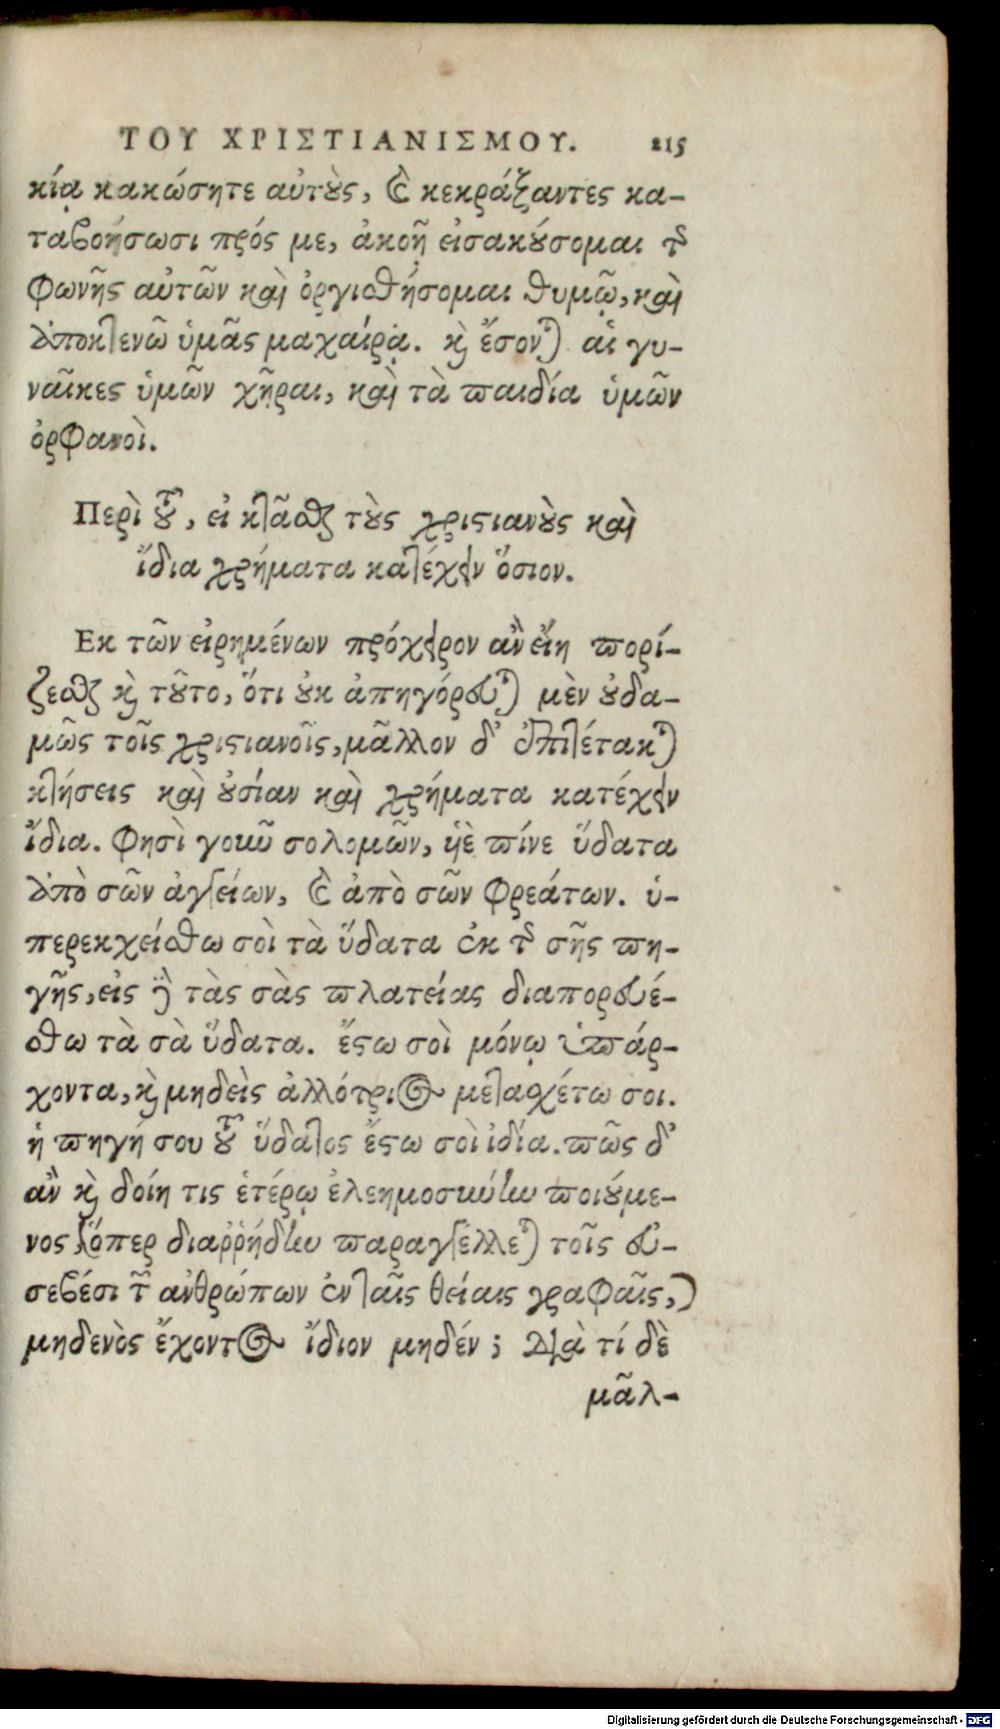 ΤΟΥ ΧΡΙΣΤΙΑΝΙΣΜΟΥ. 215
κίᾳ κακώσητε αὐτοὺς, καὶ κεκράξαντες κα-
ταβοήσωσι πρός με, ἀκοῇ εἰσακούσομαι τῆς
φωνῆς αὐτῶν καὶ ὀργισθήσομαι θυμῷ, καὶ
ἀποκτενῶ ὑμᾶς μαχαίρᾳ. καὶ ἔσονται αἱ γυ-
ναῖκες ὑμῶν χῆραι, καὶ τὰ παιδία ὑμῶν
ὀρφανοὶ.
Περὶ τοῦ, εἰ κτᾶσθαι τοὺς χριστιανοὺς καὶ
ἴδια χρήματα κατέχειν ὅσιον.
Εκ τῶν εἰρημένων πρόχειρον ἂν εἴη πορί-
ζεσθαι καὶ τοῦτο, ὅτι οὐκ ἀπηγόρευται μὲν οὐδα-
μῶς τοῖς χριστιανοῖς, μᾶλλον δ' ἐπιτέτακται
κτήσεις καὶ οὐσίαν καὶ χρήματα κατέχειν
ἴδια. Φησὶ γοῦν σολομῶν, ὑιὲ πίνε ὕδατα
ἀπὸ σῶν ἀγγείων, καὶ ἀπὸ σῶν φρεάτων. ὑ-
περεκχείσθω σοὶ τὰ ὕδατα ἐκ τῆς σῆς πη-
γῆς, εἰς δὲ τὰς σὰς πλατείας διαπορευέ-
σθω τὰ σὰ ὕδατα. ἔστω σοὶ μόνῳ ὑπάρ-
χοντα, καὶ μηδεὶς ἀλλότριος μετασχέτω σοι.
ἡ πηγή σου τοῦ ὕδατος ἔστω σοὶ ἰδία. πῶς δ'
ἂν καὶ δοίη τις ἑτέρῳ ἐλεημοσύνην ποιούμε-
νος ὅπερ διαῤῥήδην παραγγέλλεται τοῖς εὐ-
σεβέσι τῶν ἀνθρώπων ἐν ταῖς θείαις γραφαῖς,)
μηδενὸς ἔχοντος ἴδιον μηδέν; Διὰ τί δὲ
μᾶλ-
Digitalisierung gefördert durch die Deutsche Forschungsgemeinschaft - DFG